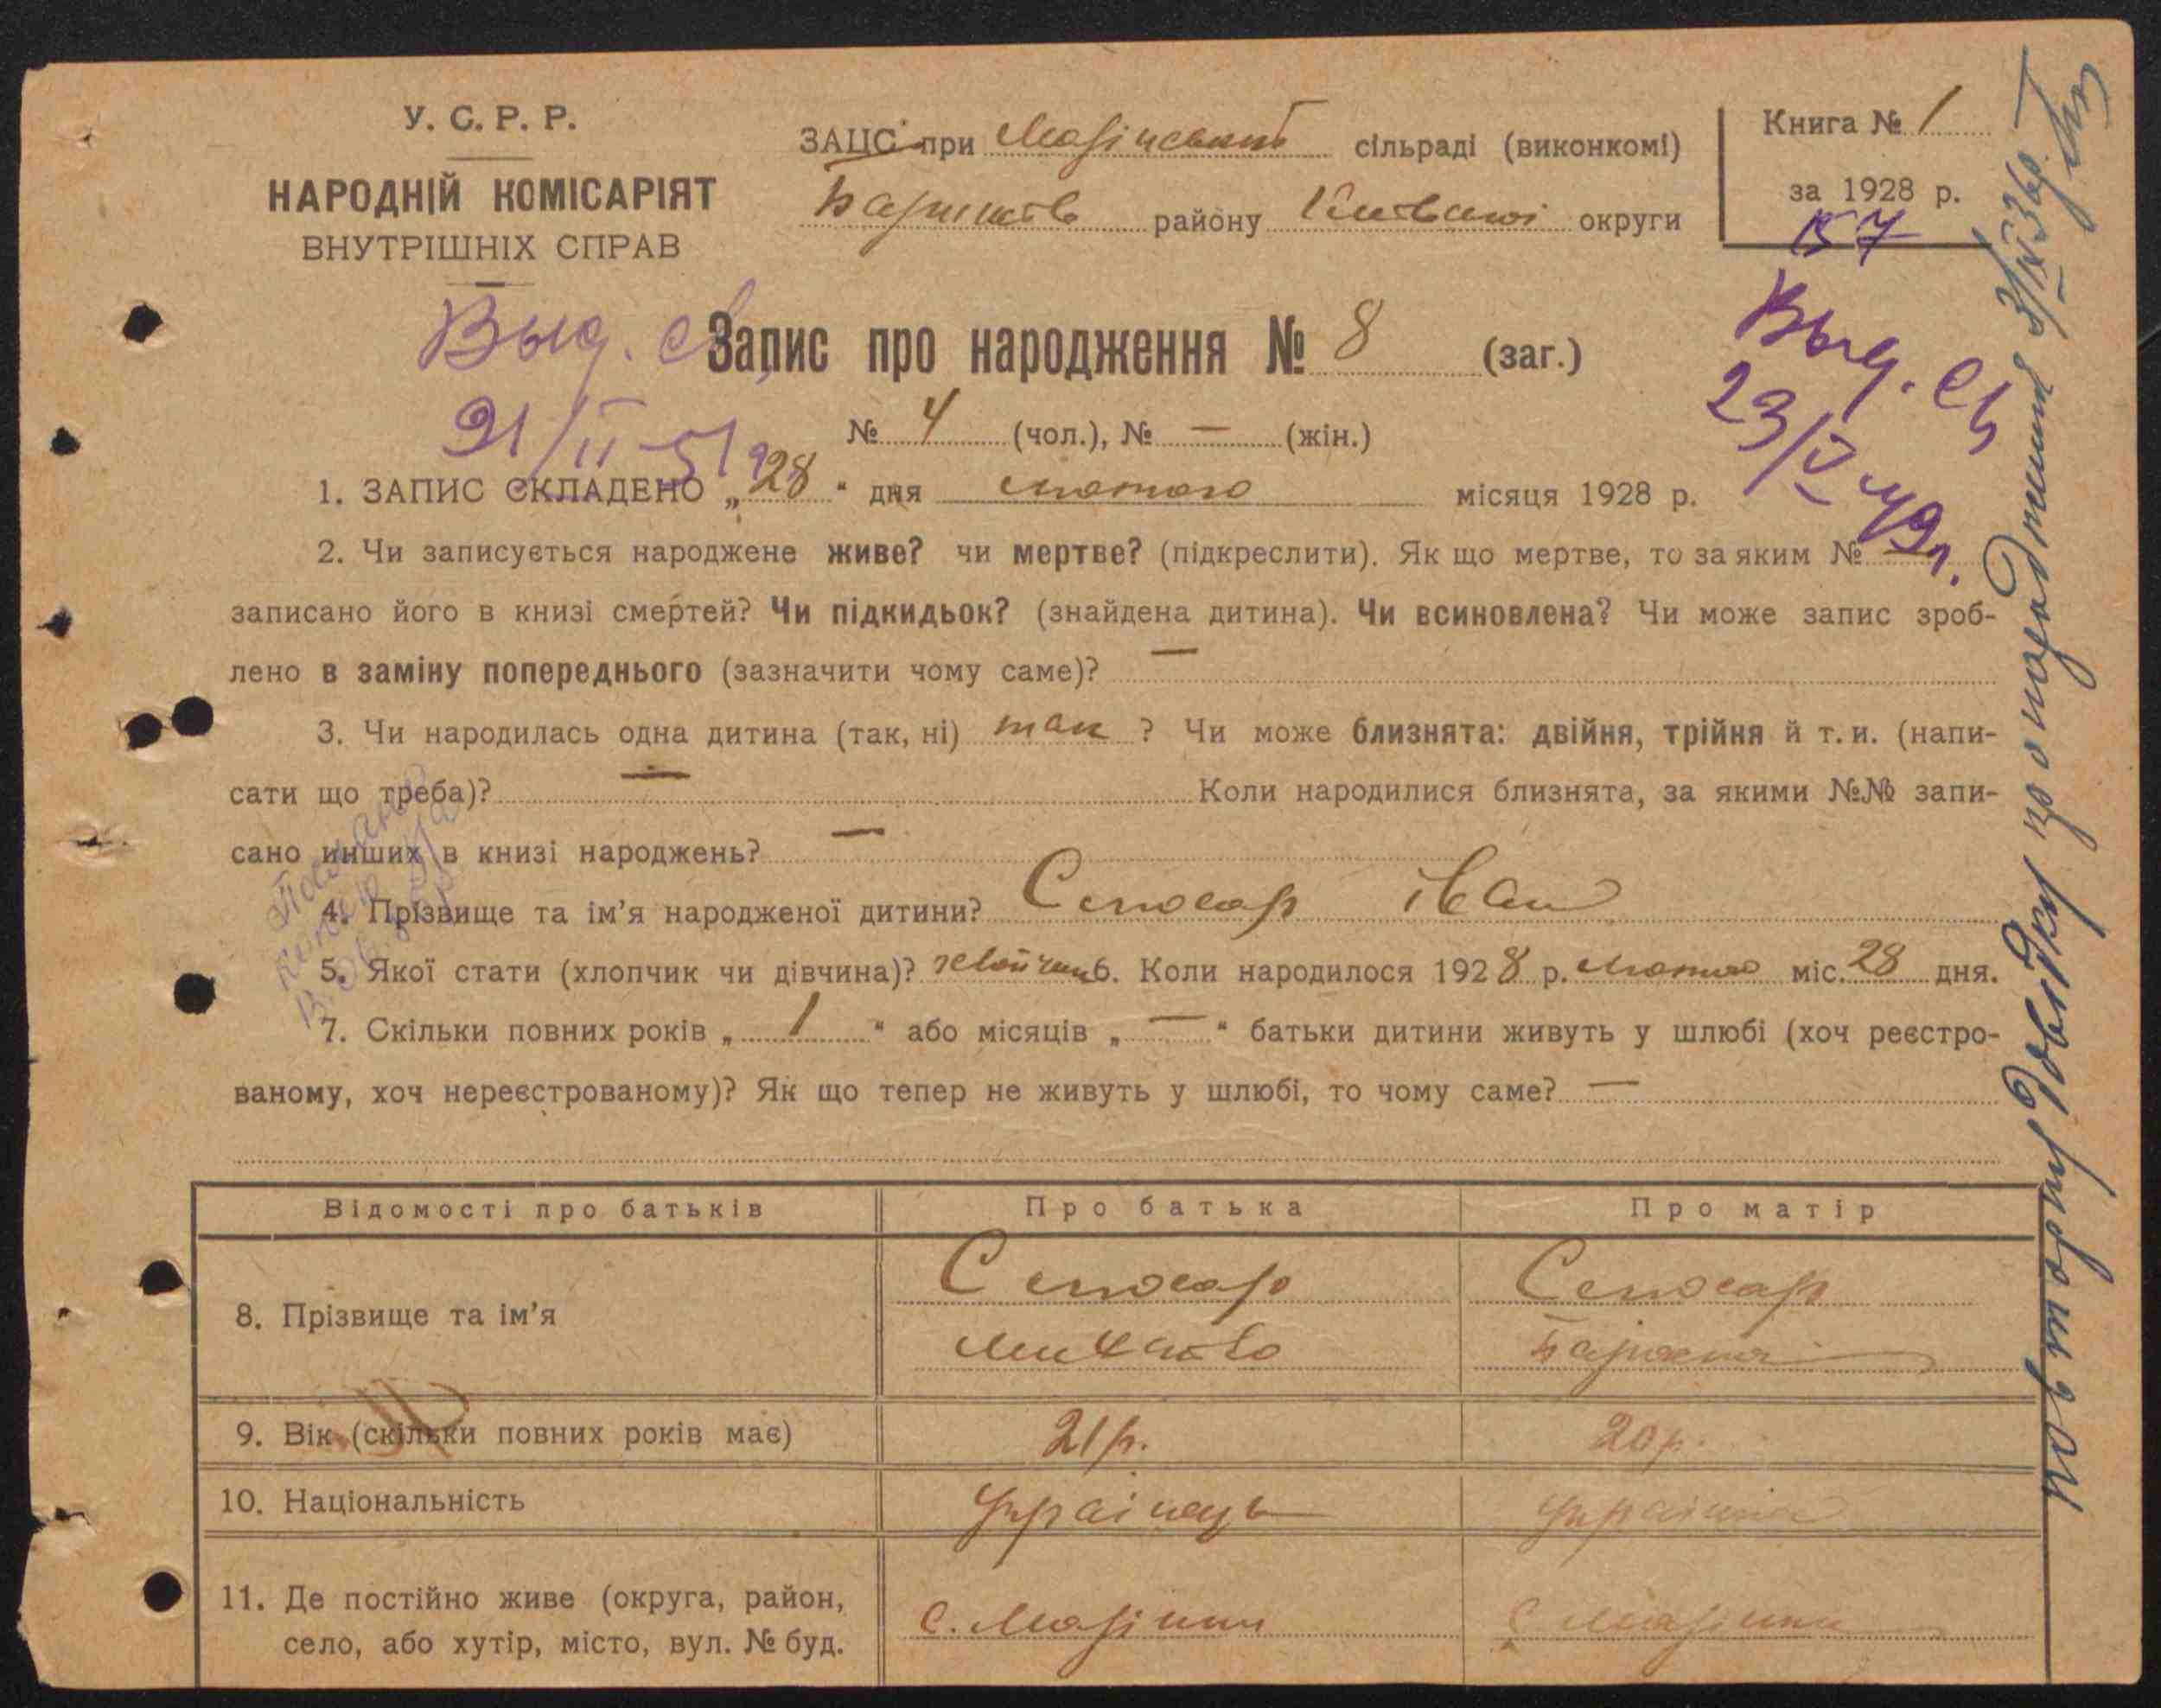 У. С. Р. Р.
НАРОДНІЙ КОМІСАРІЯТ
ВНУТРІШНІХ СПРАВ
ЗАЦС при сільраді (виконкомі)
району округи
Книга № 1
за 1928 р.
157
Выд. св.
21/II-51
Запис про народження № 8 (заг.)
Выд. св
23/V 49г.
№ 4 (чол.), № — (жін.)
1. ЗАПИС СКЛАДЕНО „28“ дня лютого місяця 1928 р.
2. Чи записується народжене живе? чи мертве? (підкреслити). Як що мертве, то за яким №
записано його в книзі смертей? Чи підкидьок? (знайдена дитина). Чи всиновлена? Чи може запис зроб-
лено в заміну попереднього (зазначити чому саме)? —
3. Чи народилась одна дитина (так, ні) так ? Чи може близнята: двійня, трійня й т. и. (напи-
сати що треба)? — Коли народилися близнята, за якими №№ запи-
сано инших в книзі народжень? —
4. Прізвище та ім'я народженої дитини? Слюсар іван
5. Якої стати (хлопчик чи дівчина)? 6. Коли народилося 1928 р. лютого міс. 28 дня.
7. Скільки повних років „ 1 “ або місяців „ — “ батьки дитини живуть у шлюбі (хоч реєстро-
ваному, хоч нереєстрованому)? Як що тепер не живуть у шлюбі, то чому саме? —
Відомості про батьків Про батька Про матір
8. Прізвище та ім'я Слюсар Слюсар
9. Вік (скільки повних років має) 21 р. 20 р.
10. Національність Українець Українка
11. Де постійно живе (округа, район,
село, або хутір, місто, вул. № буд.
повторну довідку про народження